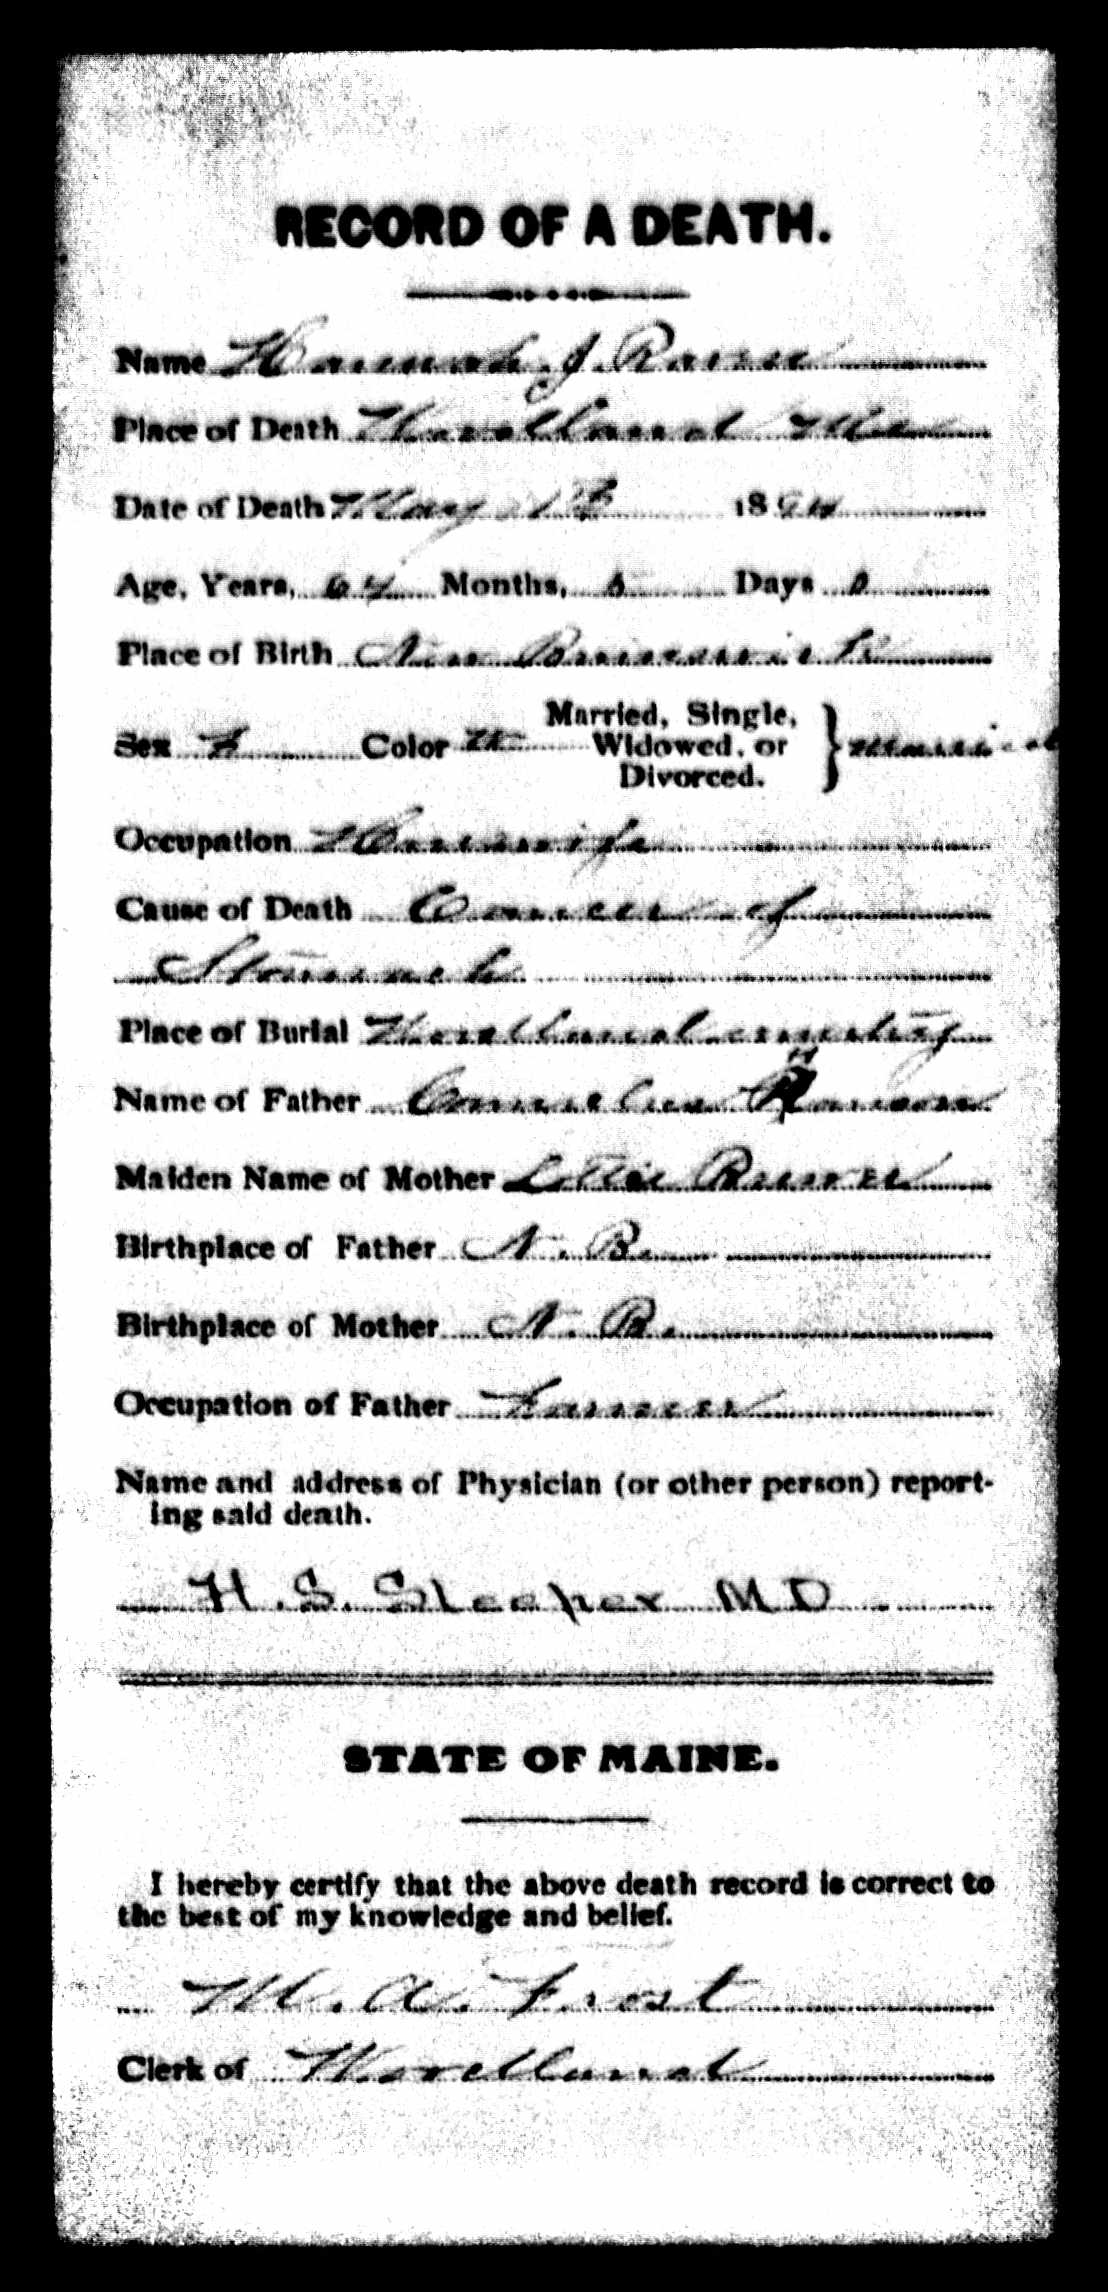 RECORD OF A DEATH.
Name Hannah J.
Place of Death Woodland Me
Date of Death May 18
Age, Years, 64 Months, Days 0
Place of Birth New Brunswick
Sex F Color W Married, Single, Widowed, or Divorced. } Married
Occupation Housewife
Cause of Death Cancer of
Stomach
Place of Burial Woodland cemetery
Name of Father Cornelius
Maiden Name of Mother
Birthplace of Father N. B.
Birthplace of Mother N. B.
Occupation of Father Farmer
Name and address of Physician (or other person) report-
ing said death.
H. S. Sleeper MD
STATE OF MAINE.
I hereby certify that the above death record is correct to
the best of my knowledge and belief.
M. A. Frost
Clerk of Woodland